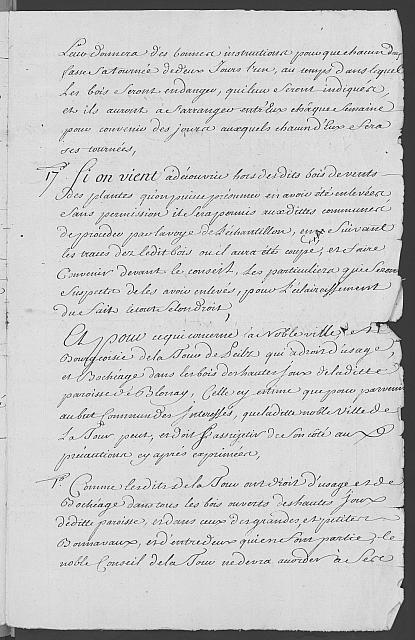 Leur donnera des bonnes instructions pour que chaun d'eux
fasse sa tournée de deux Jours l'en, au temps dans lequel
Les bois seront en danger, qui leur seront indiqués,
et ils auront à s'arranger entr'Eux châque semaine
pour convenir des jours auxquels chaun d'Eux fera
ses tournées,
17° Si on vient a découvrir hors desdits bois de vents
des plantes qu'on puisse présumer en avoir été enlevées
sans permission, il sera permis auxdittes communes
de procéder par la voye de l'échantillon, en suivant
les traces dez ledit bois ou il aura été coupé, et faire
Convenir devant le conseil, Les particuliers qui seront
suspects de les avoir enlevés, pour l'éclaircissement
du fait, le tout selon droit,
Et pour ce qui concerne la Noble ville, et
Bourgeoisie de la Tour de Peilz qui a droit d'usage,
et Bochéage dans les bois des hautes Joux de la dicte
paroisse de Blonay, Celle cy estime que pour parvenir
au but Commun des Intéressés, que ladette noble Ville de
La Tour peut, et doit s'assujetir de son coté aux
précautions cy après exprimées,
1° Comme lesdits de la Tour ont droit d'usage et de
Bochéage dans tous les bois ouverts des hautes Joux
de ditte paroisse, et dans ceux des grandes, et petites
Bonnavaux, et d'entredeux qui en sont partie, le
noble Conseil de la Tour ne devra accorder à ses